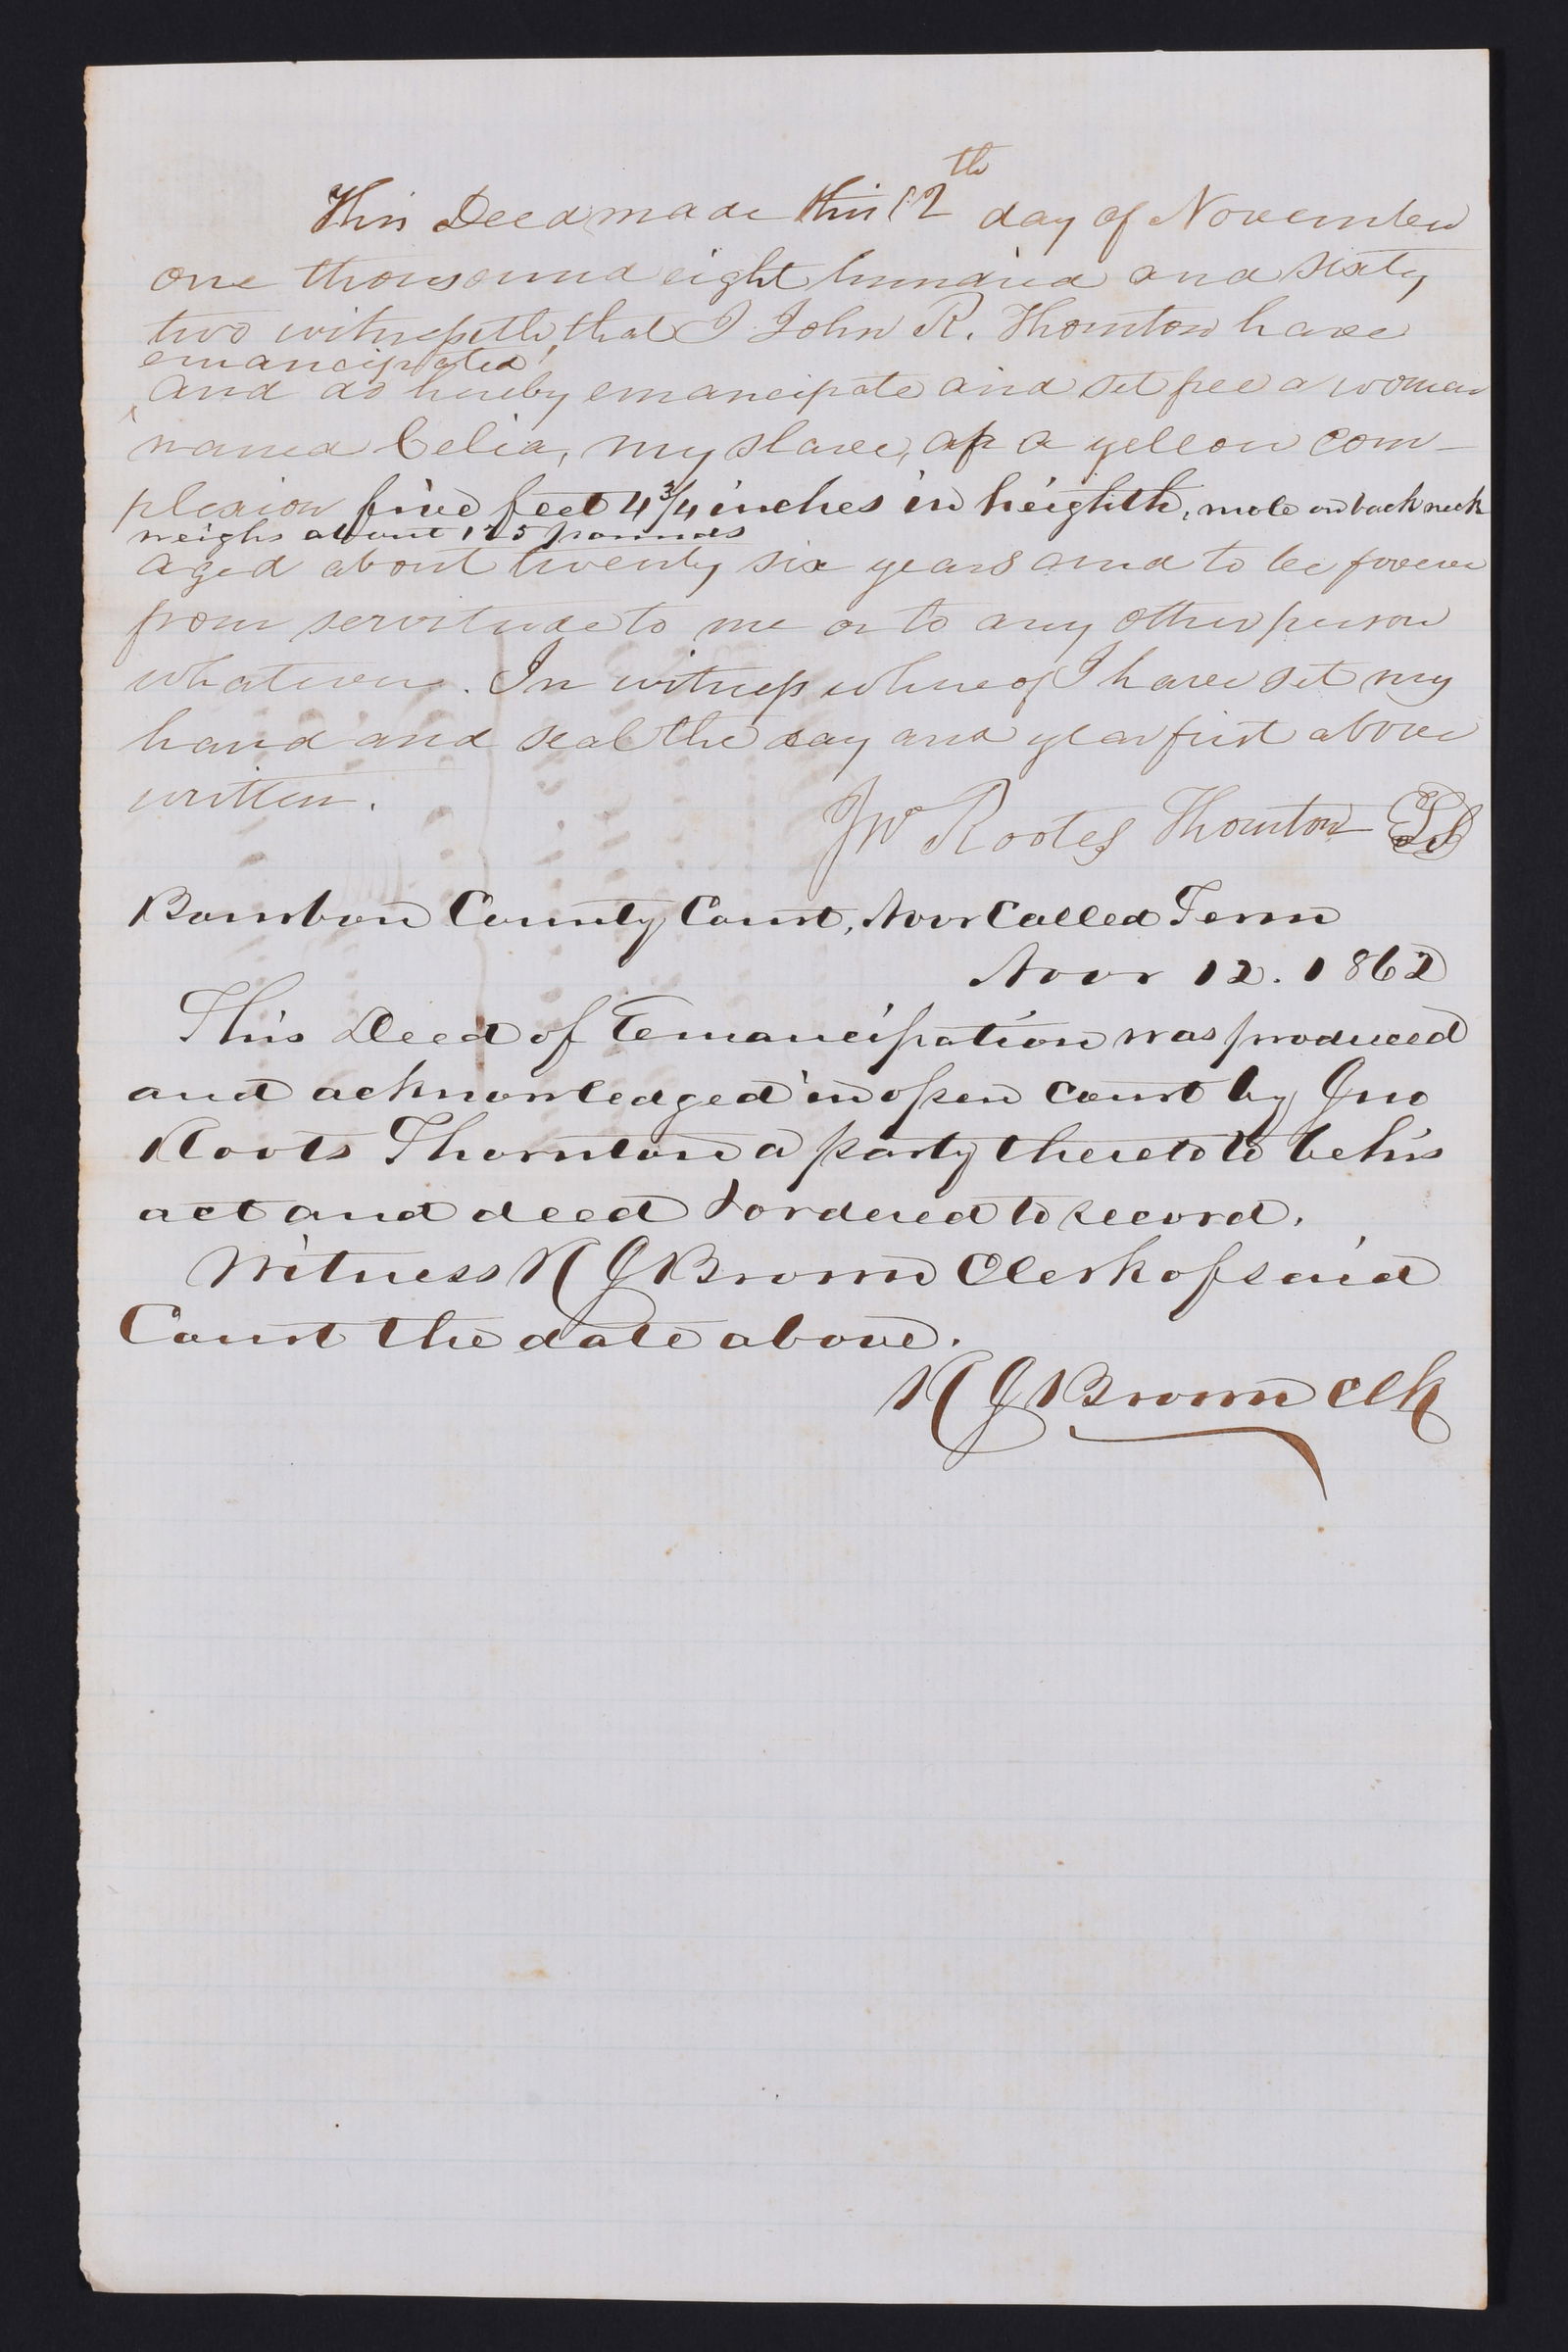 This Deed made this 12th day of November
one thousand eight hundred and sixty
two witnesseth, that I John R. Thornton have
emancipated
and do hereby emancipate and set free a woman
named Celia, my slave, of a yellow com-
plexion five feet 4 3/4 inches in heighth, mole on back neck
weighs about 125 pounds
aged about twenty six years and to be forever
from servitude to me or to any other person
whatever. In witness whereof I have set my
hand and seal the day and year first above
written.
Jno Rootes Thornton LS
Bourbon County Court, Novr Called Term
Novr 12. 1862
This Deed of Emancipation was produced
and acknowledged in open court by Jno
Roots Thornton a party thereto to be his
act and deed & ordered to record.
Witness R J Brown Clerk of said
Court the date above.
R J Brown Clk